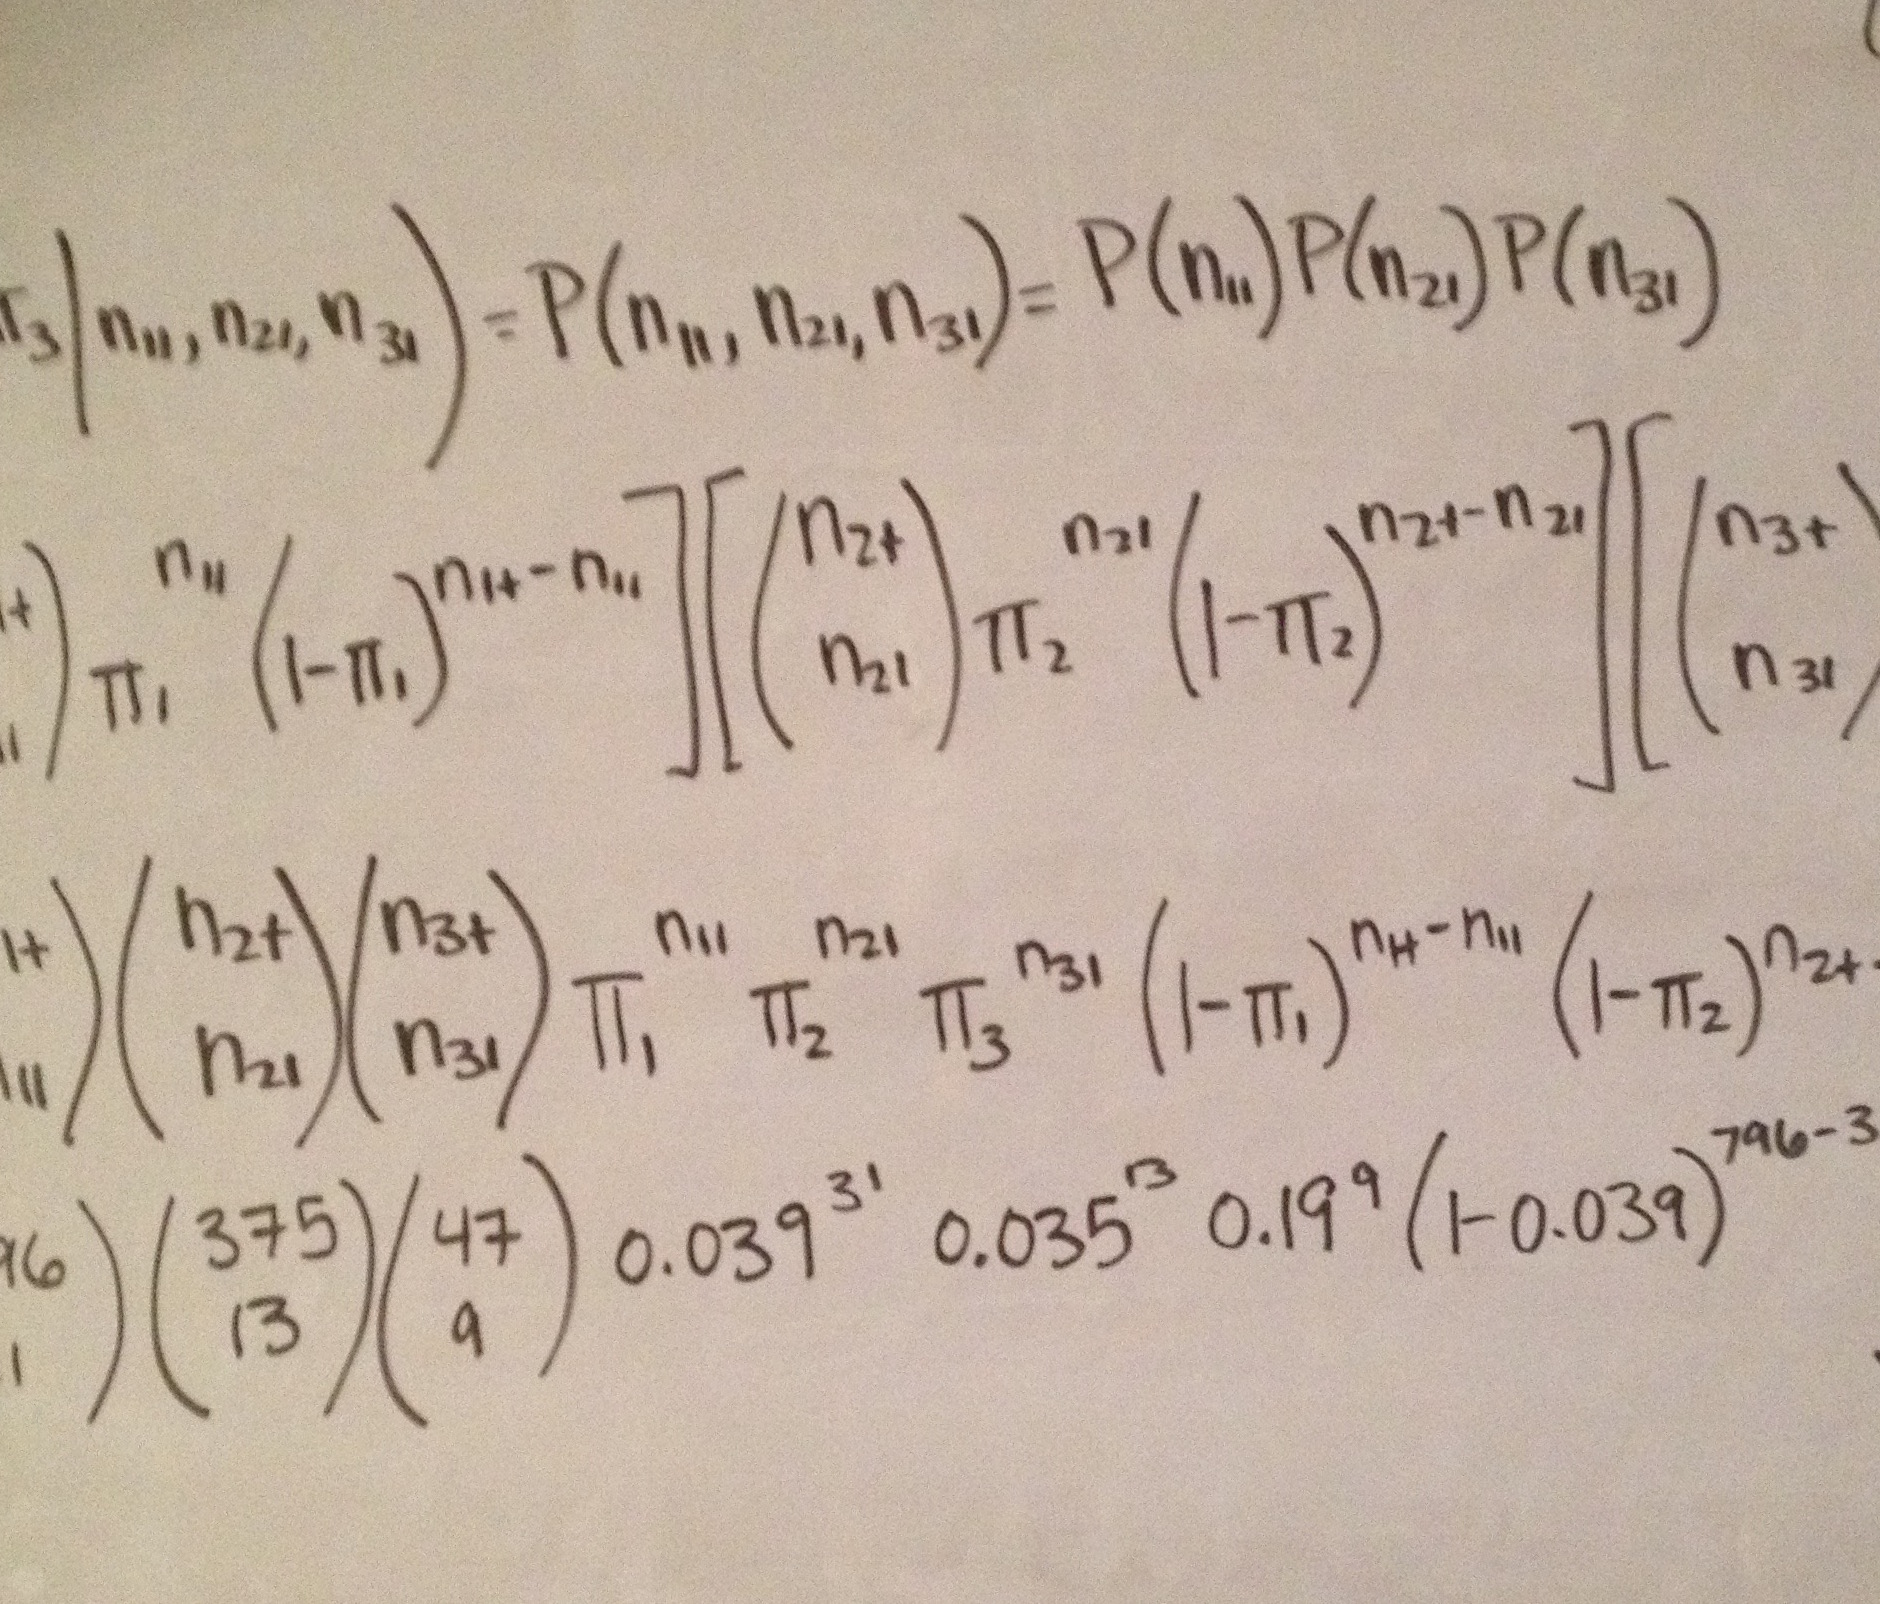 π₃|n₁₁, n₂₁, n₃₁) = P(n₁₁, n₂₁, n₃₁) = P(n₁₁) P(n₂₁) P(n₃₁)
₁₊ ₁₁) π₁^{n₁₁} (1-π₁)^{n₁₊-n₁₁}] [(n₂₊ n₂₁) π₂^{n₂₁} (1-π₂)^{n₂₊-n₂₁}] [(n₃₊ n₃₁)
₁₊ ₁₁) (n₂₊ n₂₁) (n₃₊ n₃₁) π₁^{n₁₁} π₂^{n₂₁} π₃^{n₃₁} (1-π₁)^{n₁₊-n₁₁} (1-π₂)^{n₂₊-
96 1) (375 13) (47 9) 0.039^{31} 0.035^{13} 0.19^{9} (1-0.039)^{796-3